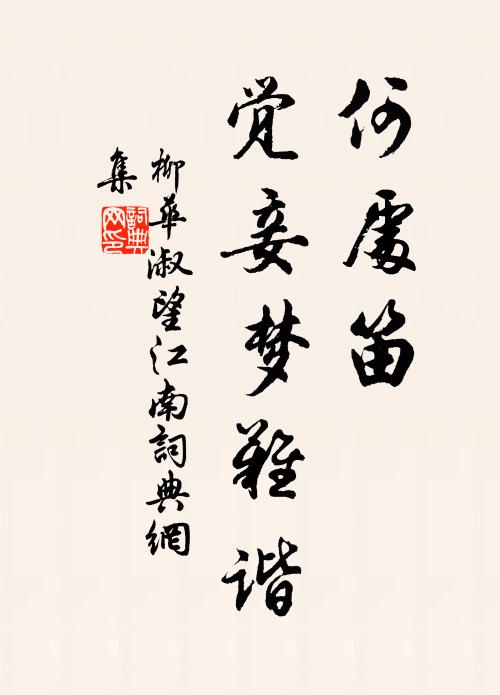 何處笛
觉妾梦難谐
柳華淑望江南詞典網
集
詞典網印